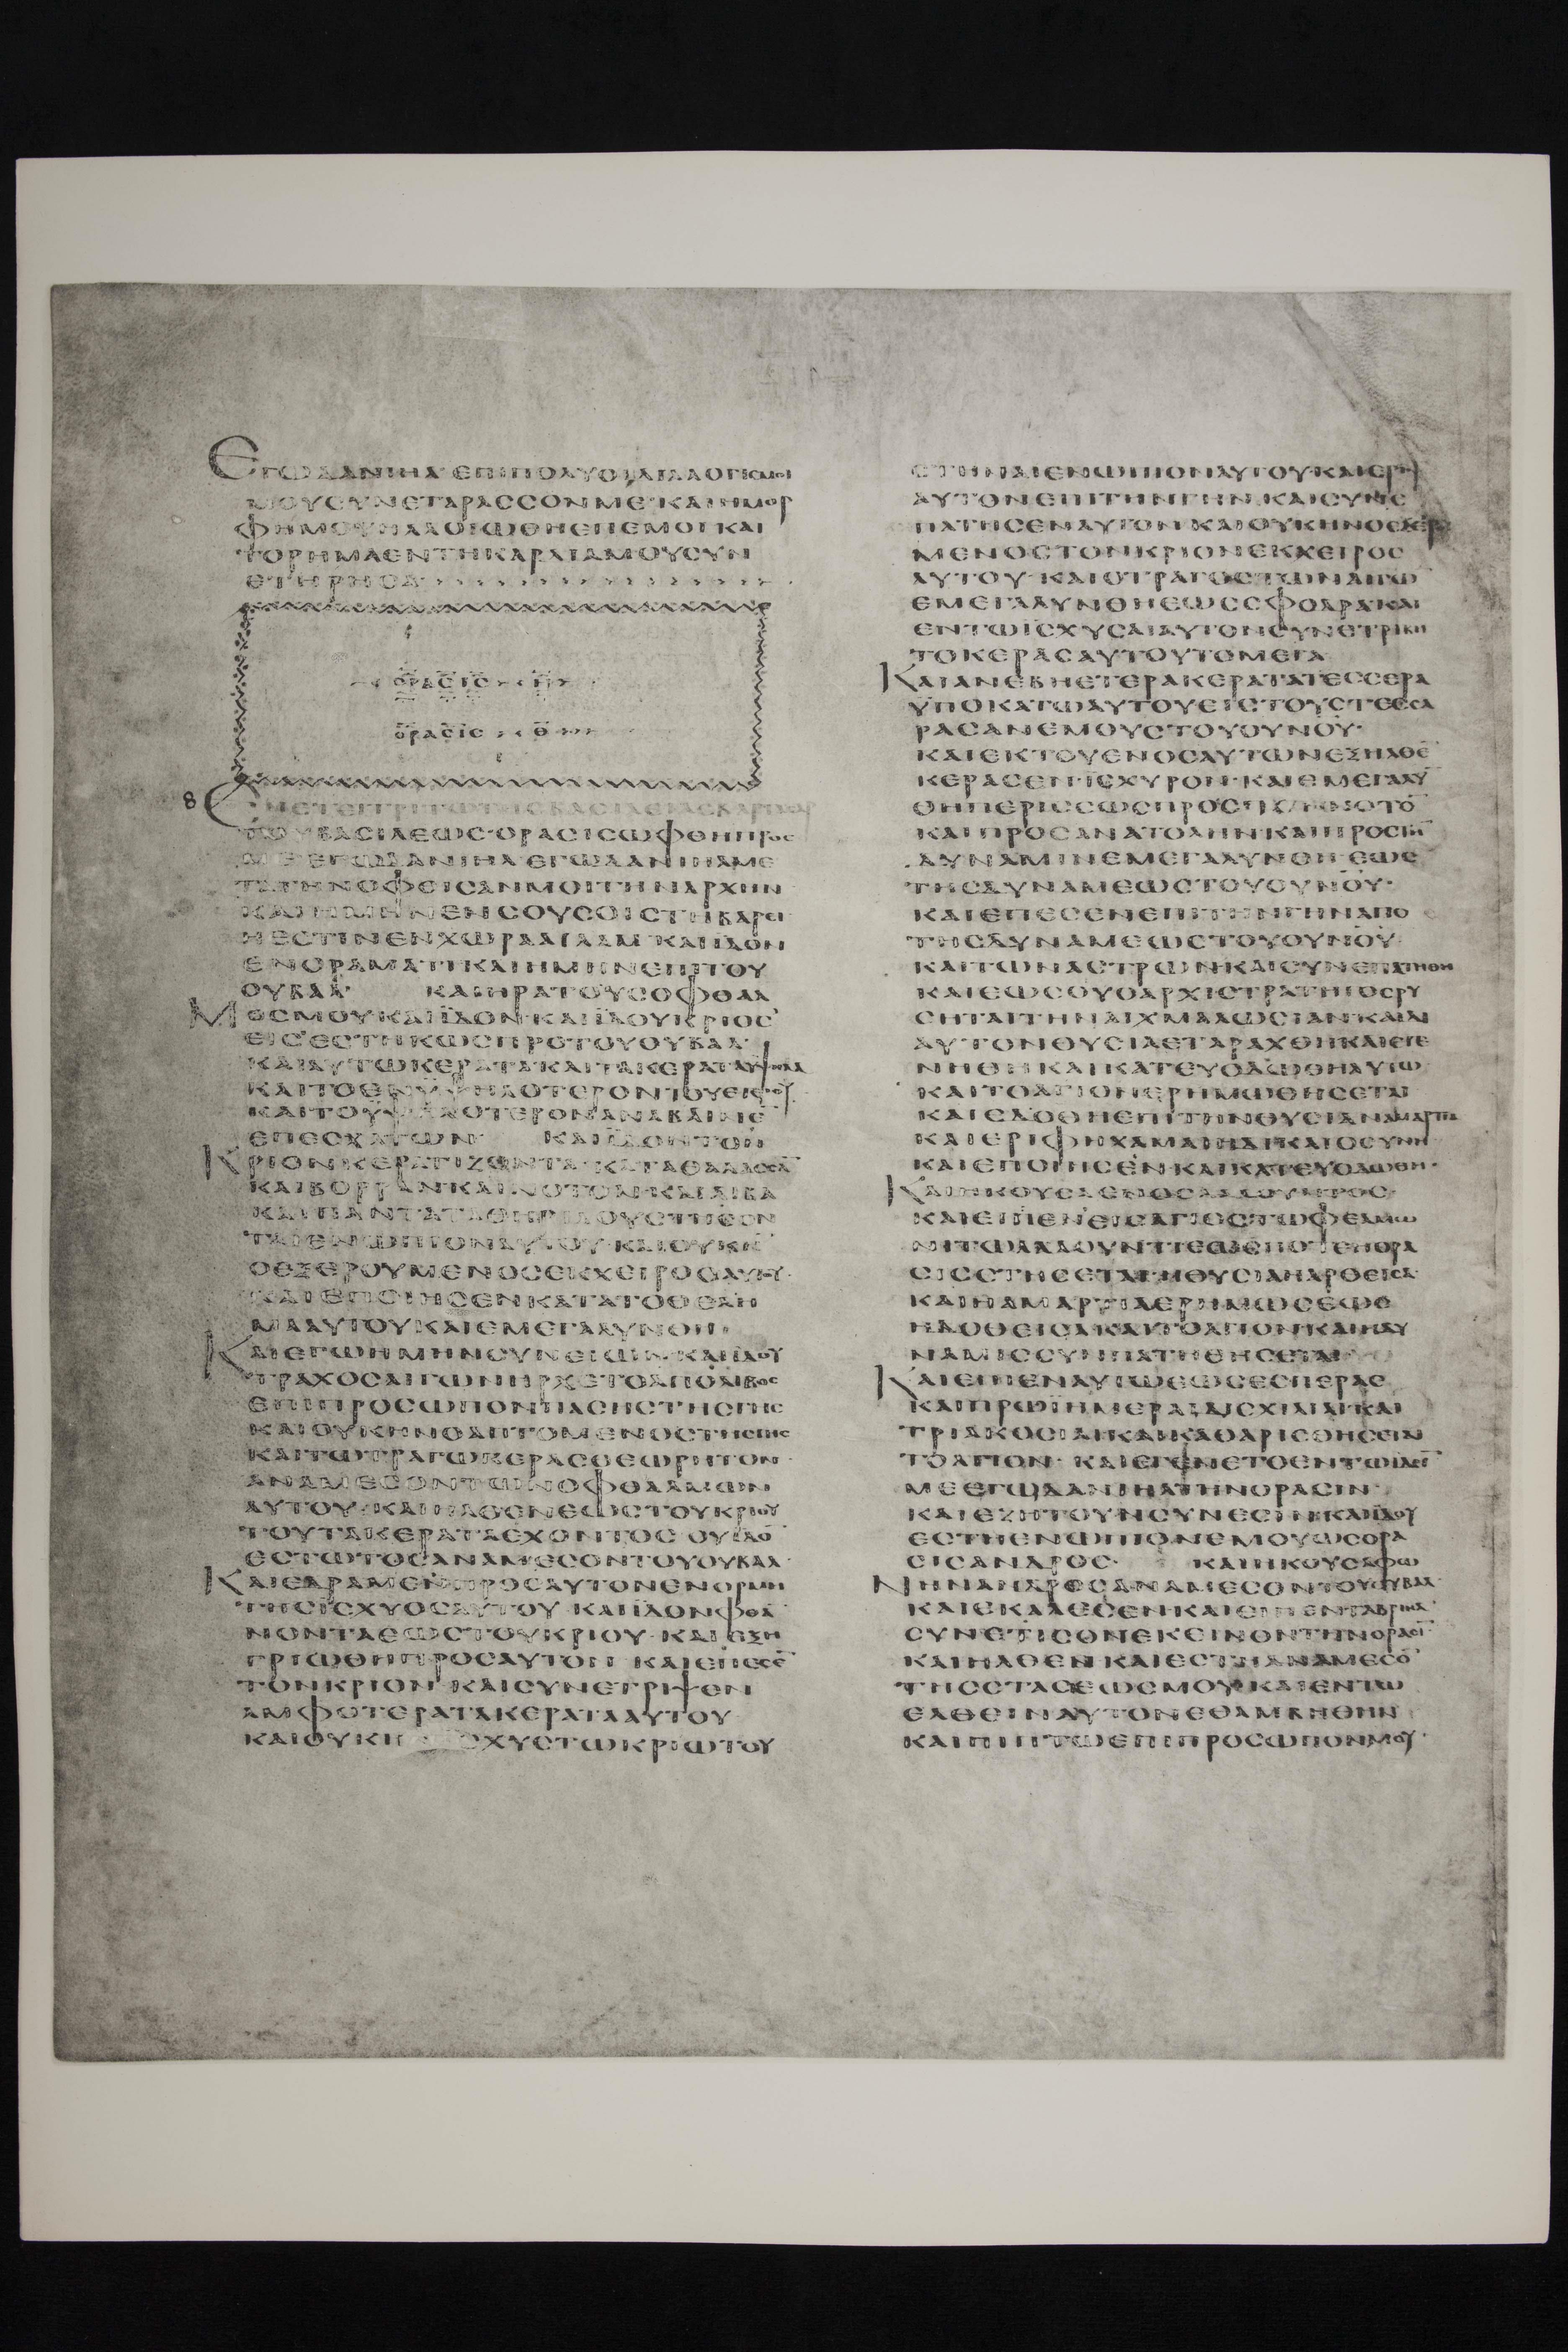 ΕΓΩΔΑΝΙΗΛ·ΕΠΙΠΟΛΥΟΙΔΙΑΛΟΓΙΣΜΟΙ
ΜΟΥΣΥΝΕΤΑΡΑΣΣΟΝΜΕ·ΚΑΙΗΜΟΡ
ΦΗΜΟΥΗΛΛΟΙΩΘΗΕΠΕΜΟΙΚΑΙ
ΤΟΡΗΜΑΕΝΤΗΚΑΡΔΙΑΜΟΥΣΥΝ
ΕΤΗΡΗΣΑ
ΟΡΑΣΙΣ Η
ΟΡΑΣΙΣ Θ
8
ΤΟΥΒΑΣΙΛΕΩΣ·ΟΡΑΣΙΣΩΦΘΗΠΡΟΣ
ΜΕΕΓΩΔΑΝΙΗΛ·ΕΓΩΔΑΝΙΗΛΜΕ
ΤΑΤΗΝΟΦΘΕΙΣΑΝΜΟΙΤΗΝΑΡΧΗΝ
ΚΑΙΗΜΗΝΕΝΣΟΥΣΟΙΣΤΗΒΑΡΕΙ
ΗΕΣΤΙΝΕΝΧΩΡΑΑΙΛΑΜ·ΚΑΙΙΔΟΝ
ΕΝΟΡΑΜΑΤΙΚΑΙΗΜΗΝΕΠΙΤΟΥ
ΟΥΒΑΛ· ΚΑΙΗΡΑΤΟΥΣΟΦΘΑΛ
ΜΟΣΜΟΥΚΑΙΙΔΟΝ·ΚΑΙΙΔΟΥΚΡΙΟΣ
ΕΙΣΕΣΤΗΚΩΣΠΡΟΤΟΥΟΥΒΑΛ·
ΚΑΙΑΥΤΩΚΕΡΑΤΑΚΑΙΤΑΚΕΡΑΤΑΥΨΗΛΑ
ΚΑΙΤΟΕΝΥΨΗΛΟΤΕΡΟΝΤΟΥΕΤΕΡΟΥ
ΚΑΙΤΟΥΨΗΛΟΤΕΡΟΝΑΝΕΒΑΙΝΕ̅
ΕΠΕΣΧΑΤΩΝ· ΚΑΙΙΔΟΝΤΟΝ
ΚΡΙΟΝΚΕΡΑΤΙΖΟΝΤΑ·ΚΑΤΑΘΑΛΑΣΣΑ̅
ΚΑΙΒΟΡΡΑΝ·ΚΑΙΝΟΤΟΝ·ΚΑΙΛΙΒΑ
ΚΑΙΠΑΝΤΑΤΑΘΗΡΙΑΟΥΣΤΗΣΟΝ
ΤΑΙΕΝΩΠΙΟΝΑΥΤΟΥ·ΚΑΙΟΥΚΗ̅
ΟΕΞΕΡΟΥΜΕΝΟΣΕΚΧΕΙΡΟΣΑΥΤΟΥ·
ΚΑΙΕΠΟΙΗΣΕΝΚΑΤΑΤΟΘΕΛΗ
ΜΑΑΥΤΟΥΚΑΙΕΜΕΓΑΛΥΝΘΗ·
ΚΑΙΕΓΩΗΜΗΝΣΥΝΕΙΩΝ·ΚΑΙΙΔΟΥ
ΤΡΑΧΟΣΑΙΓΩΝΗΡΧΕΤΟΑΠΟΛΙΒΟΣ
ΕΠΙΠΡΟΣΩΠΟΝΠΑΣΗΣΤΗΣΓΗΣ
ΚΑΙΟΥΚΗΝΟΑΠΤΟΜΕΝΟΣΤΗΣΓΗΣ
ΚΑΙΤΩΤΡΑΓΩΚΕΡΑΣΘΕΩΡΗΤΟΝ·
ΑΝΑΜΕΣΟΝΤΩΝΟΦΘΑΛΜΩΝ
ΑΥΤΟΥ·ΚΑΙΗΛΘΕΝΕΩΣΤΟΥΚΡΙΟΥ
ΤΟΥΤΑΚΕΡΑΤΑΕΧΟΝΤΟΣ ΟΥΙΔΟ̅
ΕΣΤΩΤΟΣΑΝΑΜΕΣΟΝΤΟΥΟΥΒΑΛ·
ΚΑΙΕΔΡΑΜΕΝΠΡΟΣΑΥΤΟΝΕΝΟΡΜΗ
ΤΗΣΙΣΧΥΟΣΑΥΤΟΥ·ΚΑΙΙΔΟΝΦΘΑ
ΝΟΝΤΑΕΩΣΤΟΥΚΡΙΟΥ·ΚΑΙΕΞΗ
ΓΡΙΩΘΗΠΡΟΣΑΥΤΟΝ ΚΑΙΕΠΕΣΕ̅
ΤΟΝΚΡΙΟΝ·ΚΑΙΣΥΝΕΤΡΙΨΕΝ
ΑΜΦΟΤΕΡΑΤΑΚΕΡΑΤΑΑΥΤΟΥ·
ΚΑΙΟΥΚΗ ΣΧΥΣΤΩΚΡΙΩΤΟΥ
ΣΤΗΝΑΙΕΝΩΠΙΟΝΑΥΤΟΥ·ΚΑΙΕΡΙΨ
ΑΥΤΟΝΕΠΙΤΗΝΓΗΝ·ΚΑΙΣΥΝΕ
ΠΑΤΗΣΕΝΑΥΤΟΝ·ΚΑΙΟΥΚΗΝΟΕΞΕΡ
ΜΕΝΟΣΤΟΝΚΡΙΟΝΕΚΧΕΙΡΟΣ
ΑΥΤΟΥ·ΚΑΙΟΤΡΑΓΟΣΤΩΝΑΙΓΩ̅
ΕΜΕΓΑΛΥΝΘΗΕΩΣΣΦΟΔΡΑ·ΚΑΙ
ΕΝΤΩΙΣΧΥΣΑΙΑΥΤΟΝΣΥΝΕΤΡΙΒΗ
ΤΟΚΕΡΑΣΑΥΤΟΥΤΟΜΕΓΑ
ΚΑΙΑΝΕΒΗΕΤΕΡΑΚΕΡΑΤΑΤΕΣΣΕΡΑ
ΥΠΟΚΑΤΩΑΥΤΟΥΕΙΣΤΟΥΣΤΕΣΣΑ
ΡΑΣΑΝΕΜΟΥΣΤΟΥΟΥΝΟΥ·
ΚΑΙΕΚΤΟΥΕΝΟΣΑΥΤΩΝΕΞΗΛΘΕ̅
ΚΕΡΑΣΕΝΙΣΧΥΡΟΝ·ΚΑΙΕΜΕΓΑΛΥ̅
ΘΗΠΕΡΙΣΣΩΣΠΡΟΣΤΟΝΝΟΤΟ̅
ΚΑΙΠΡΟΣΑΝΑΤΟΛΗΝ·ΚΑΙΠΡΟΣΤΗ̅
ΔΥΝΑΜΙΝΕΜΕΓΑΛΥΝΘΗ·ΕΩΣ
ΤΗΣΔΥΝΑΜΕΩΣΤΟΥΟΥΝΟΥ·
ΚΑΙΕΠΕΣΕΝΕΠΙΤΗΝΓΗΝΑΠΟ
ΤΗΣΔΥΝΑΜΕΩΣΤΟΥΟΥΝΟΥ·
ΚΑΙΤΩΝΑΣΤΡΩΝ·ΚΑΙΣΥΝΕΠΑΤΗΘΗ
ΚΑΙΕΩΣΟΥΟΑΡΧΙΣΤΡΑΤΗΓΟΣΡΥ
ΣΗΤΑΙΤΗΝΑΙΧΜΑΛΩΣΙΑΝ·ΚΑΙΔΙ
ΑΥΤΟΝΘΥΣΙΑΕΤΑΡΑΧΘΗΚΑΙΕΓΕ
ΝΗΘΗΚΑΙΚΑΤΕΥΟΔΩΘΗΑΥΤΩ
ΚΑΙΤΟΑΓΙΟΝΕΡΗΜΩΘΗΣΕΤΑΙ
ΚΑΙΕΔΟΘΗΕΠΙΤΗΝΘΥΣΙΑΝΑΜΑΡΤΙΑ
ΚΑΙΕΡΙΦΗΧΑΜΑΙΗΔΙΚΑΙΟΣΥΝΗ
ΚΑΙΕΠΟΙΗΣΕΝΚΑΙΚΑΤΕΥΟΔΩΘΗ·
ΚΑΙΗΚΟΥΣΑΕΝΟΣΛΑΛΟΥΝΤΟΣ·
ΚΑΙΕΙΠΕΝΕΙΣΑΓΙΟΣΤΩΦΕΛΜΩ
ΝΙΤΩΛΑΛΟΥΝΤΙΕΩΣΠΟΤΕΗΟΡΑ
ΣΙΣΣΤΗΣΕΤΑΙ·ΗΘΥΣΙΑΗΑΡΘΕΙΣΑ·
ΚΑΙΗΑΜΑΡΤΙΑΕΡΗΜΩΣΕΩΣ
ΗΔΟΘΕΙΣΑΚΑΙΤΟΑΓΙΟΝ·ΚΑΙΗΔΥ
ΝΑΜΙΣΣΥΜΠΑΤΗΘΗΣΕΤΑΙ
ΚΑΙΕΙΠΕΝΑΥΤΩΕΩΣΕΣΠΕΡΑΣ
ΚΑΙΠΡΩΙΗΜΕΡΑΙΔΙΣΧΙΛΙΑΙΚΑΙ
ΤΡΙΑΚΟΣΙΑΙ·ΚΑΙΚΑΘΑΡΙΣΘΗΣΕΤΑΙ
ΤΟΑΓΙΟΝ· ΚΑΙΕΓΕΝΕΤΟΕΝΤΩΙΔΕΙ̅
ΜΕΕΓΩΔΑΝΙΗΛΤΗΝΟΡΑΣΙΝ·
ΚΑΙΕΖΗΤΟΥΝΣΥΝΕΣΙΝ·ΚΑΙΙΔΟΥ
ΕΣΤΗΕΝΩΠΙΟΝΕΜΟΥΩΣΟΡΑ
ΣΙΣΑΝΔΡΟΣ· ΚΑΙΗΚΟΥΣΑΦΩ
ΝΗΝΑΝΔΡΟΣΑΝΑΜΕΣΟΝΤΟΥΟΥΒΑΛ·
ΚΑΙΕΚΑΛΕΣΕΝΚΑΙΕΙΠΕΝΓΑΒΡΙΗΛ·
ΣΥΝΕΤΙΣΟΝΕΚΕΙΝΟΝΤΗΝΟΡΑΣΙ̅
ΚΑΙΗΛΘΕΝΚΑΙΕΣΤΗΑΝΑΜΕΣΟ̅
ΤΗΣΣΤΑΣΕΩΣΜΟΥΚΑΙΕΝΤΩ
ΕΛΘΕΙΝΑΥΤΟΝΕΘΑΜΒΗΘΗΝ
ΚΑΙΠΙΠΤΩΕΠΙΠΡΟΣΩΠΟΝΜΟΥ·